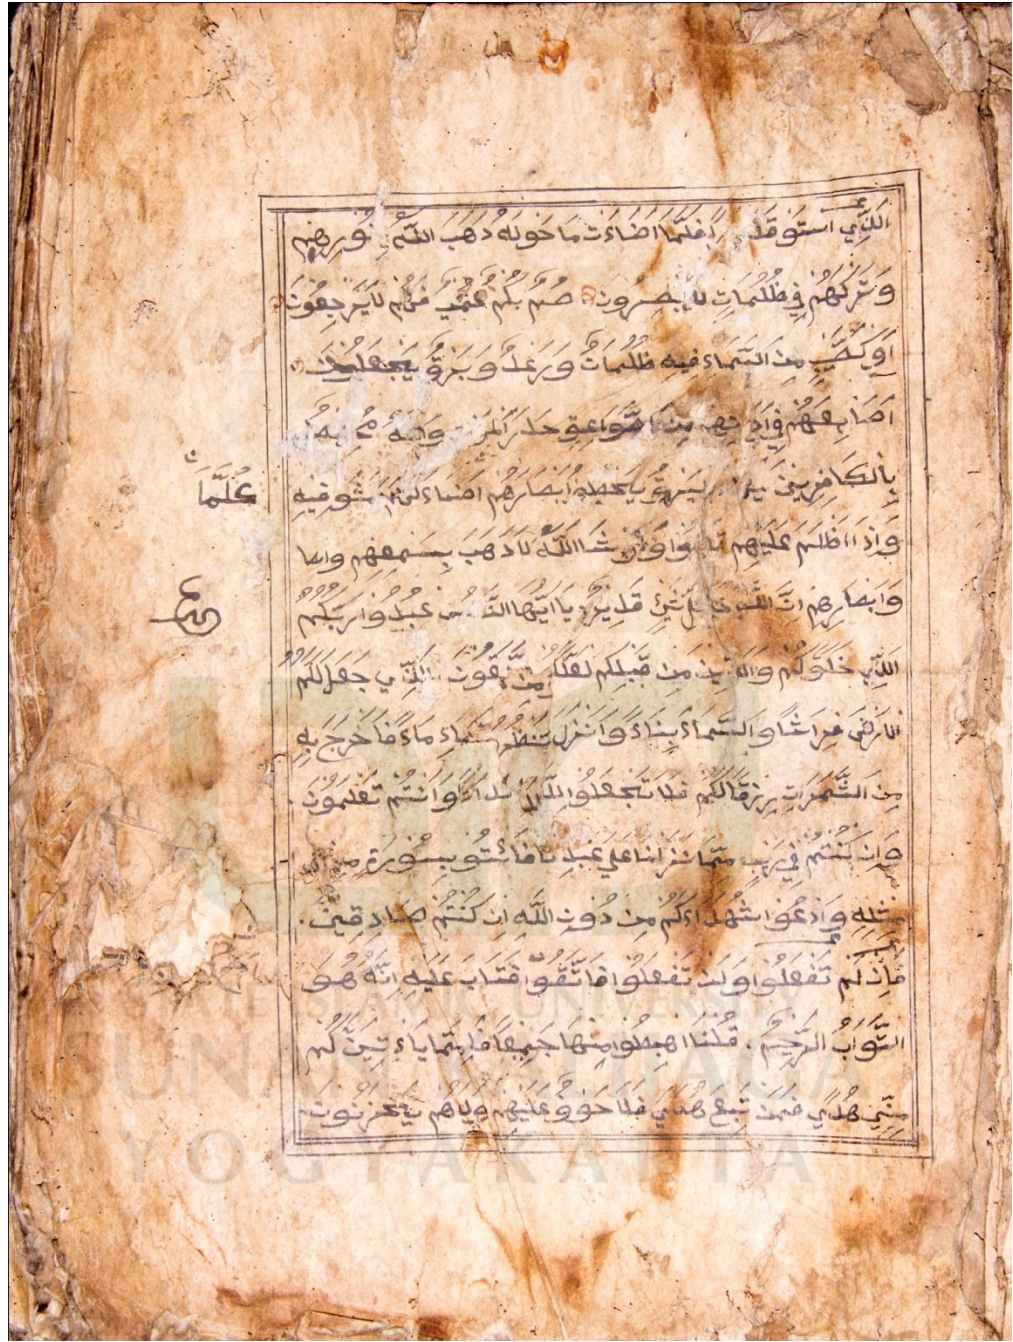 الَّذِي اسْتَوْقَدَ فَلَمَّا اَضَاءَتْ مَا حَوْلَهُ ذَهَبَ اللَّهُ بِنُوْرِهِمْ
وَتَرَكَهُمْ فِي ظُلُمَاتٍ لَا يُبْصِرُونَ صُمٌّ بُكْمٌ عُمْيٌ فَهُمْ لَا يَرْجِعُوْنَ
اَوْ كَصَيِّبٍ مِنَ السَّمَاءِ فِيهِ ظُلُمَاتٌ وَرَعْدٌ وَبَرْقٌ يَجْعَلُوْنَ
اَصَابِعَهُمْ فِي مِنَ الصَّوَاعِقِ حَذَرَ الْمَوْتِ وَاللهُ
بِالْكَافِرِينَ الْبَرْقُ يَخْطَفُ اَبْصَارَهُمْ اَضَاءَ لَهُمْ مَشَوْ فِيهِ
كُلَّمَا
وَاِذَا اَظْلَمَ عَلَيْهِمْ قَامُوا وَلَوْ شَاءَ اللَّهُ لَذَهَبَ بِسَمْعِهِمْ
وَاَبْصَارِهِمْ اِنَّ اللَّهَ شَيْءٍ قَدِيْرٌ يَا اَيُّهَا النَّاسُ عْبُدُوْا رَبَّكُمُ
الَّذِي خَلَقَكُمْ وَالَّذِينَ مِنْ قَبْلِكُمْ لَعَلَّكُمْ تَتَّقُوْنَ الَّذِي جَعَلَ لَكُمُ
فِرَاشًا وَالسَّمَاءَ بِنَاءً وَاَنْزَلَ مَاءً فَاَخْرَجَ بِهِ
مِنَ الثَّمَرَاتِ رِزْقًا لَكُمْ فَلَا تَجْعَلُوا لِلَّهِ اَنْدَادًا وَاَنْتُمْ تَعْلَمُوْنَ .
وَاِنْ كُنْتُمْ فِي رَيْبٍ مِمَّا نَزَّلْنَا عَلَى عَبْدِنَا فَاْئْتُوْ بِسُوْرَةٍ مِنْ
مِثْلِهِ وَادْعُوْا شُهَدَاءَكُمْ مِنْ دُوْنِ اللَّهِ اِنْ كُنْتُمْ صَادِقِيْنَ .
فَاِنْ لَمْ تَفْعَلُوْا وَلَنْ تَفْعَلُوْا فَاتَّقُوْا فَتَابَ عَلَيْهِ اِنَّهُ هُوَ
التَّوَّابُ الرَّحِيْمُ . قُلْنَا اهْبِطُوْا مِنْهَا جَمِيْعًا فَاِمَّا يَاْتِيَنَّكُمْ
مِنِّيْ هُدًي فَمَنْ تَبِعَ هُدَايَ فَلَا خَوْفٌ عَلَيْهِمْ وَلَاهُمْ يَحْزَنُوْنَ
STATE ISLAMIC UNIVERSITY
SUNAN KALIJAGA
YOGYAKARTA